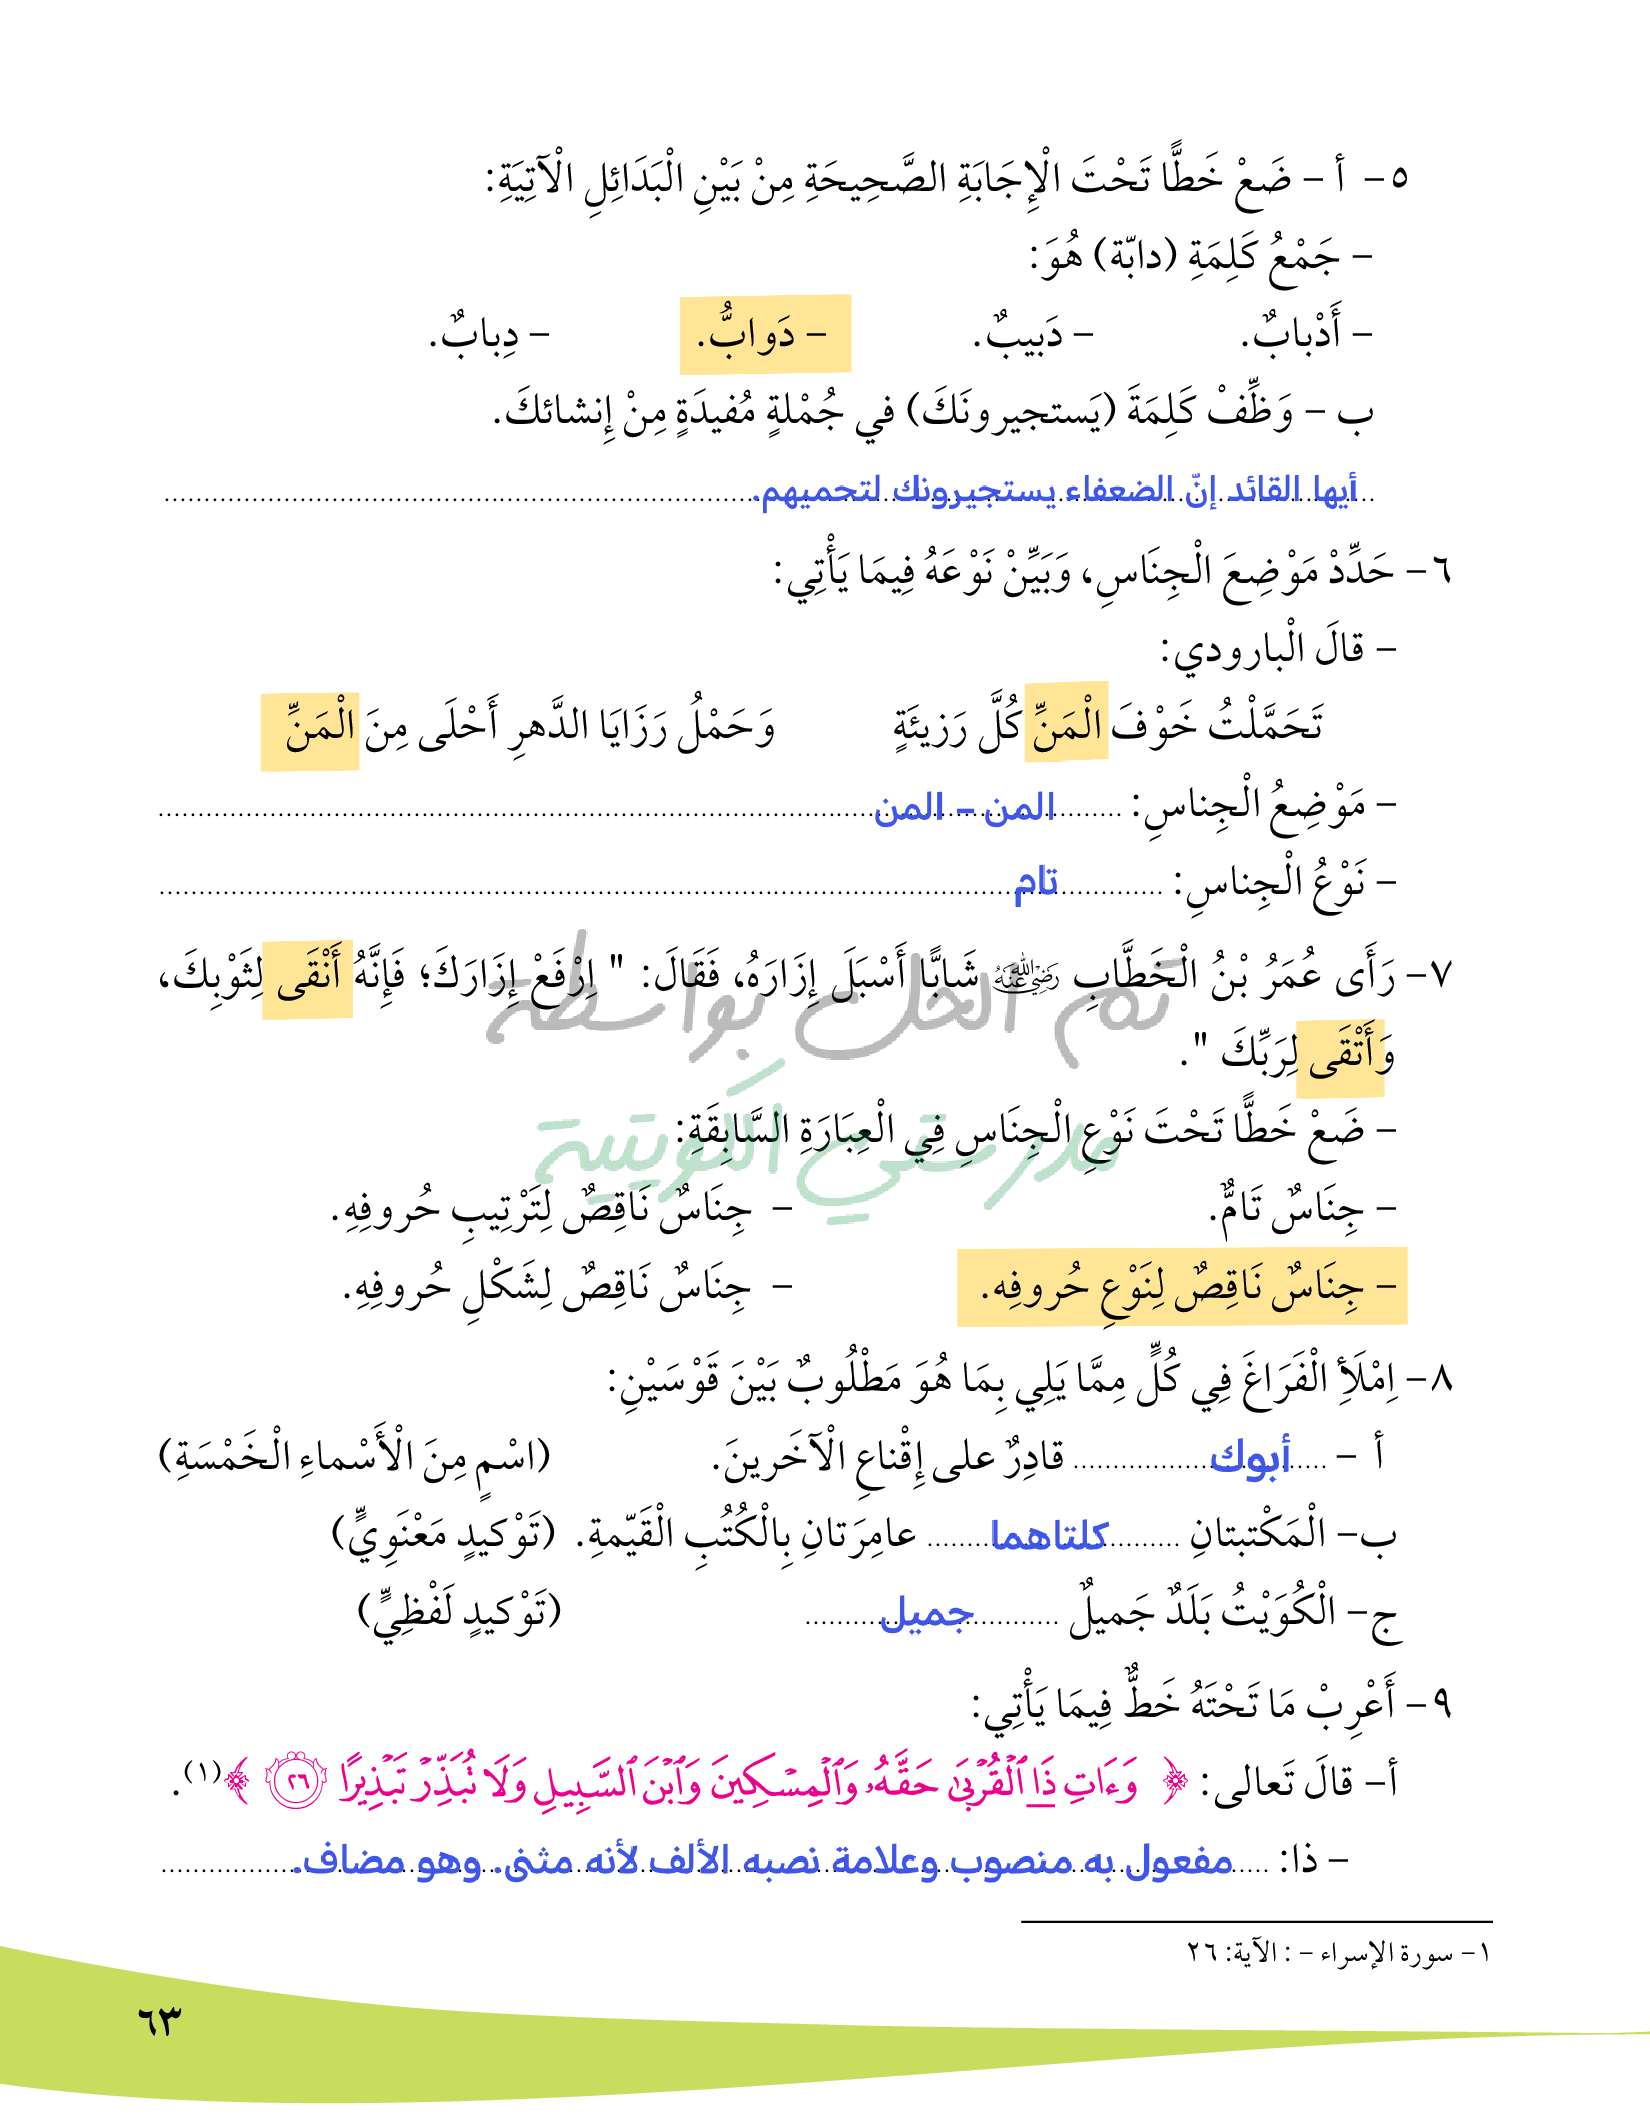 ٥- أ - ضَعْ خَطًّا تَحْتَ الْإِجَابَةِ الصَّحِيحَةِ مِنْ بَيْنِ الْبَدَائِلِ الْآتِيَةِ:
- جَمْعُ كَلِمَةِ (دابّة) هُوَ:
- أَدْبابٌ. - دَبيبٌ. - دَوابُّ. - دِبابٌ.
ب - وَظِّفْ كَلِمَةَ (يَستجيرونَكَ) في جُمْلةٍ مُفيدَةٍ مِنْ إِنشائكَ.
أيها القائد إنّ الضعفاء يستجيرونك لتحميهم.
٦- حَدِّدْ مَوْضِعَ الْجِنَاسِ، وَبَيِّنْ نَوْعَهُ فِيمَا يَأْتِي:
- قالَ الْبارودي:
تَحَمَّلْتُ خَوْفَ الْمَنِّ كُلَّ رَزيئَةٍ وَحَمْلُ رَزَايَا الدَّهرِ أَحْلَى مِنَ الْمَنِّ
- مَوْضِعُ الْجِناسِ: المن - المن
- نَوْعُ الْجِناسِ: تام
٧- رَأَى عُمَرُ بْنُ الْخَطَّابِ رَضِيَ اللهُ عَنْهُ شَابًّا أَسْبَلَ إِزَارَهُ، فَقَالَ: " اِرْفَعْ إِزَارَكَ؛ فَإِنَّهُ أَنْقَى لِثَوْبِكَ،
تم الحل بواسطة
وَأَتْقَى لِرَبِّكَ ".
مدرستي الكويتية
- ضَعْ خَطًّا تَحْتَ نَوْعِ الْجِنَاسِ فِي الْعِبَارَةِ السَّابِقَةِ:
- جِنَاسٌ تَامٌّ. - جِنَاسٌ نَاقِصٌ لِتَرْتِيبِ حُروفِهِ.
- جِنَاسٌ نَاقِصٌ لِنَوْعِ حُروفِه. - جِنَاسٌ نَاقِصٌ لِشَكْلِ حُروفِهِ.
٨- اِمْلَأِ الْفَرَاغَ فِي كُلٍّ مِمَّا يَلِي بِمَا هُوَ مَطْلُوبٌ بَيْنَ قَوْسَيْنِ:
أ - أبوك قادِرٌ على إِقْناعِ الْآخَرينَ. (اسْمٍ مِنَ الْأَسْماءِ الْخَمْسَةِ)
ب- الْمَكْتبتانِ كلتاهما عامِرَتانِ بِالْكُتُبِ الْقَيّمةِ. (تَوْكيدٍ مَعْنَوِيٍّ)
ج- الْكُوَيْتُ بَلَدٌ جَميلٌ جميل (تَوْكيدٍ لَفْظِيٍّ)
٩- أَعْرِبْ مَا تَحْتَهُ خَطٌّ فِيمَا يَأْتِي:
أ- قالَ تَعالى: ﴿ وَءَاتِ ذَا ٱلْقُرْبَىٰ حَقَّهُۥ وَٱلْمِسْكِينَ وَٱبْنَ ٱلسَّبِيلِ وَلَا تُبَذِّرْ تَبْذِيرًا ٢٦ ﴾(١).
- ذا: مفعول به منصوب وعلامة نصبه الألف لأنه مثنى. وهو مضاف.
١- سورة الإسراء - : الآية: ٢٦
٦٣